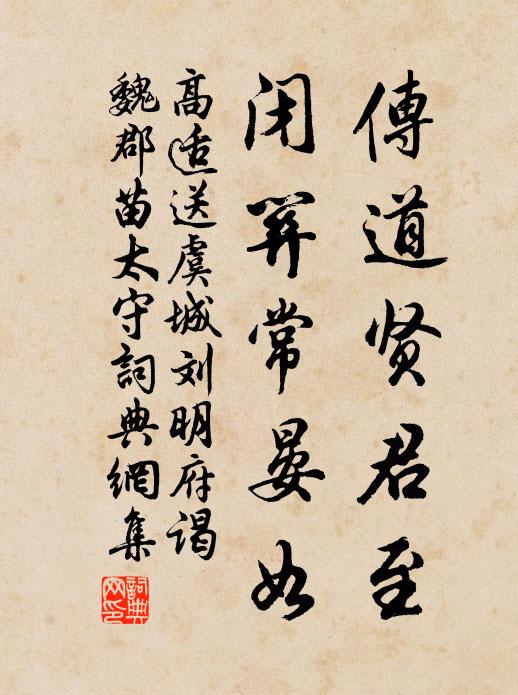 傳道贤君至
闭関常晏如
高适送虞城刘明府谒
魏郡苗太守詞典網集
詞典網印